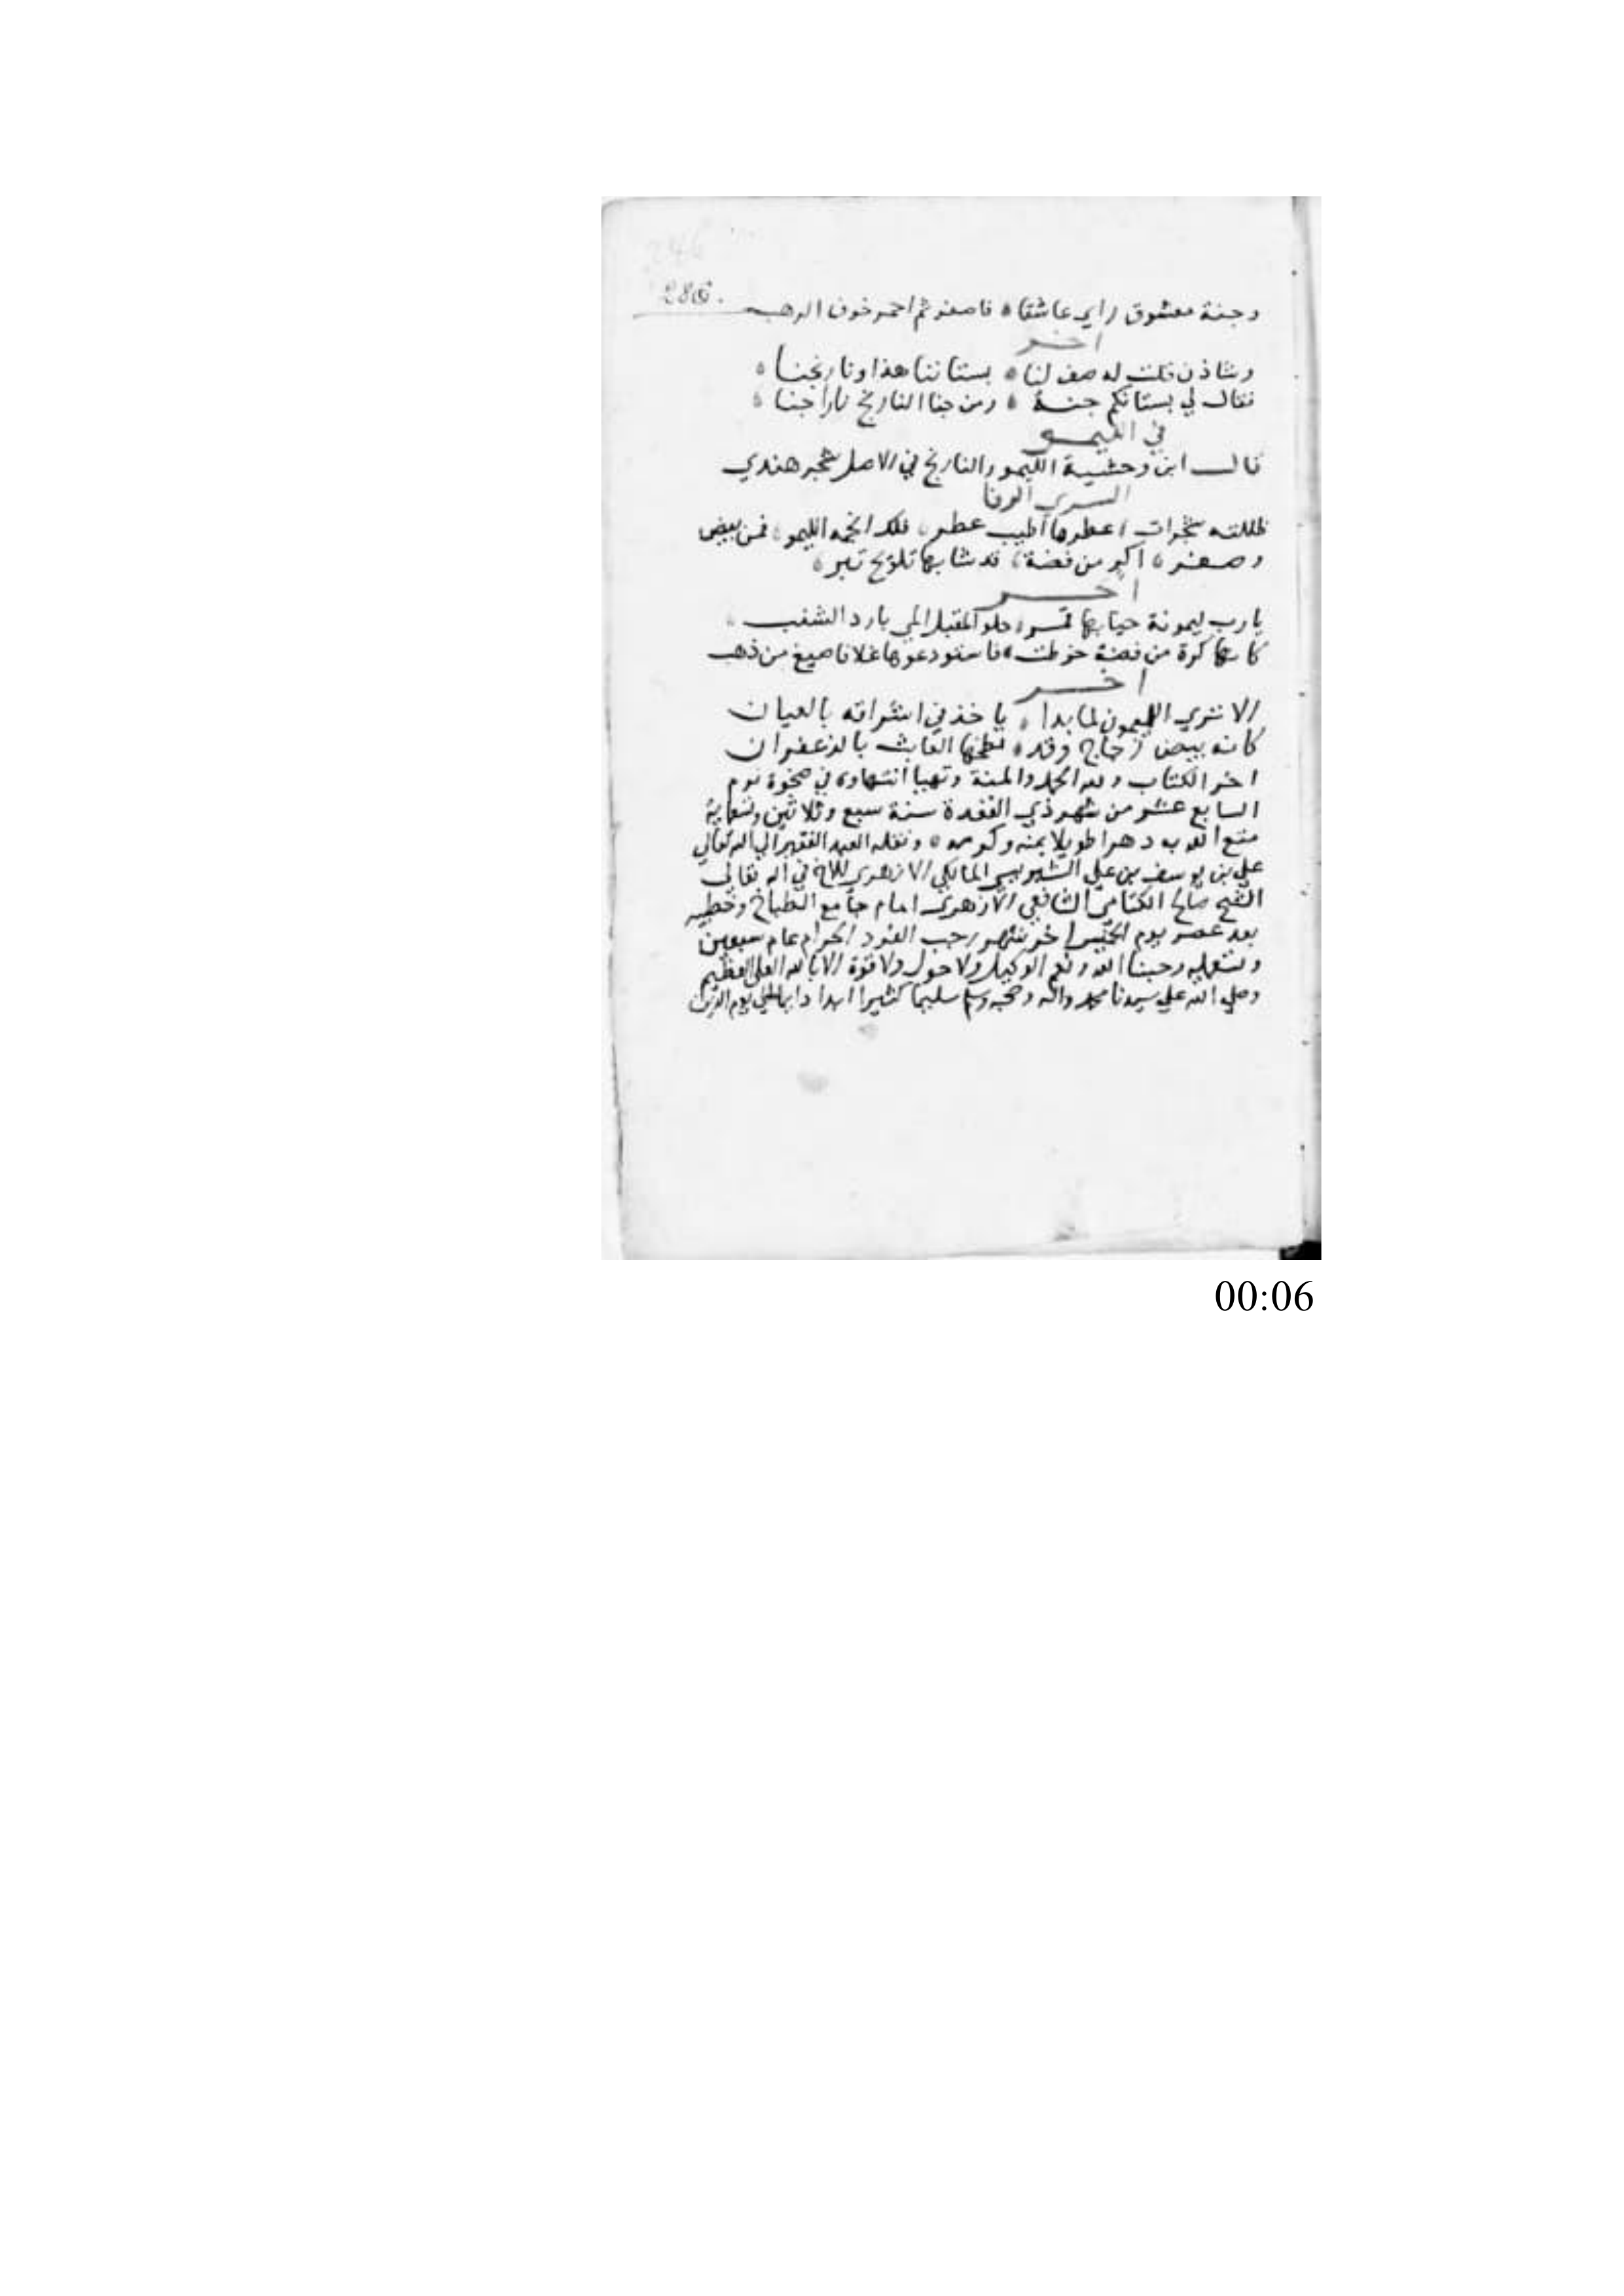 246
286.
وجنة معشوق راي عاشقا ه فاصفر ثم احمر خوف الرهب
اخر
وشاذن قلت له صف لنا ه بستاننا هذا ونارنجنا ه
فقال لي بستانكم جنة ه ومن جنا النارنج نارا جنا ه
في الليمو
قال ابن وحشية الليمو والنارنج في الاصل شجر هندي
السري الرفا
ظللته شجرات عطرها اطيب عطر ه فلك انجمه الليمو ه فمن بيض
وصفر ه اكر من فضة ه قد شابها تلويح تبر ه
اخر
يارب ليمونة حيا بها قمر ه حلو المقبل المي بارد الشنب ه
كانها كرة من فضة خرطت ه فاستودعوها غلافا صيغ من ذهب
اخر
الا تري الليمون لما بدا ه ياخذ في اشراقه بالعيان
كانه بيض زجاج وقد ه لطخها العابث بالزعفران
اخر الكتاب ولله الحمد والمنة وتهيا انتهاوه في ضحوة يوم
السابع عشر من شهر ذي القعدة سنة سبع وثلاثين وتسعماية
متع الله به دهرا طويلا بمنه وكرمه ه ونقله العبد الفقير الي الله تعالي
علي بن يوسف بن علي المالكي الازهري للاخ في الله تعالي
الشيخ صالح الكتامي الشافعي الازهري امام جامع الطباخ وخطيبه
بعد عصر يوم الخميس اخر شهر رجب الفرد الحرام عام سبعين
وتسعمايه وحسبنا الله ونعم الوكيل ولا حول ولا قوة الا بالله العلي العظيم
وصلي الله علي سيدنا محمد واله وصحبه وسلم سليما كثيرا ابدا دايما الي يوم الدين
00:06